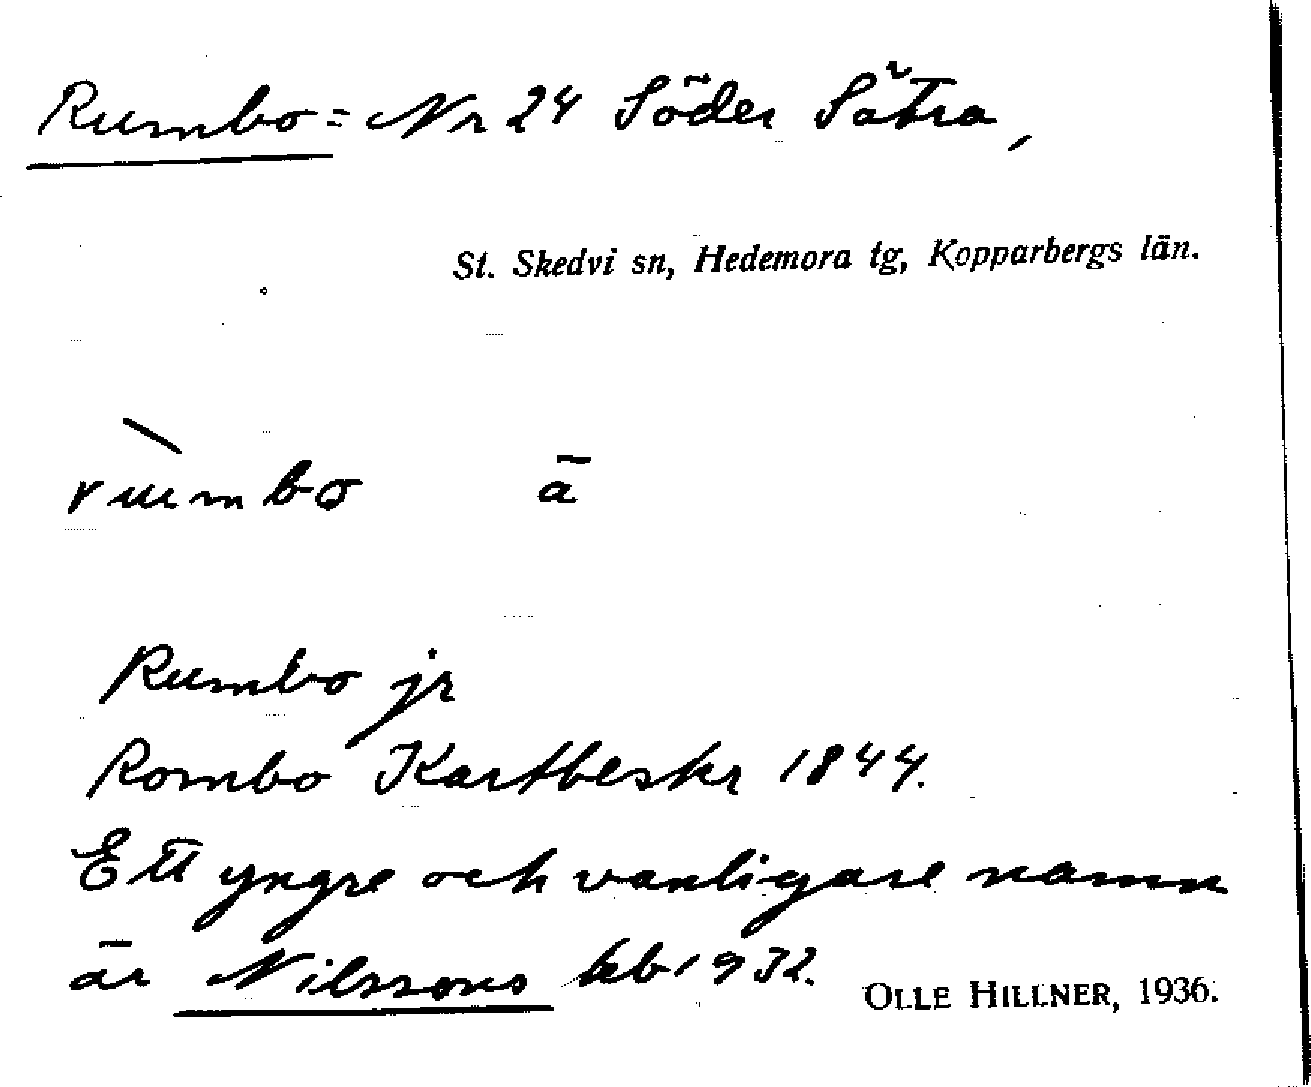 Rumbo = Nr 24 Söder Sätra,
St. Skedvi sn, Hedemora tg, Kopparbergs län.
rùmbo ä
Rumbo jr
Rombo Kartbeskr 1844.
Ett yngre och vanligare namn
är Nilssons kb 1932.
OLLE HILLNER, 1936.